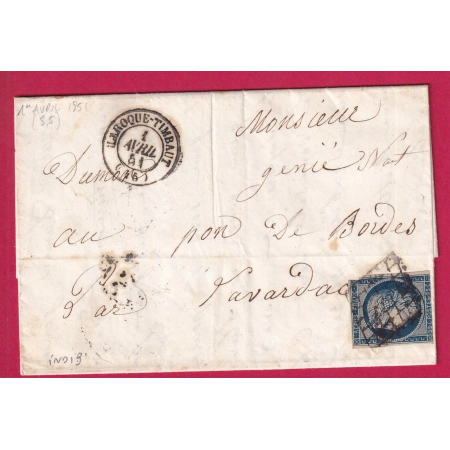 1er AVRIL 1851
(S,S)
LAROQUE-TIMBAUT
1
AVRIL
51
(46)
Monsieur
Dumon génié Nat
au pon De Bordes
Par Lavardac
INDIS